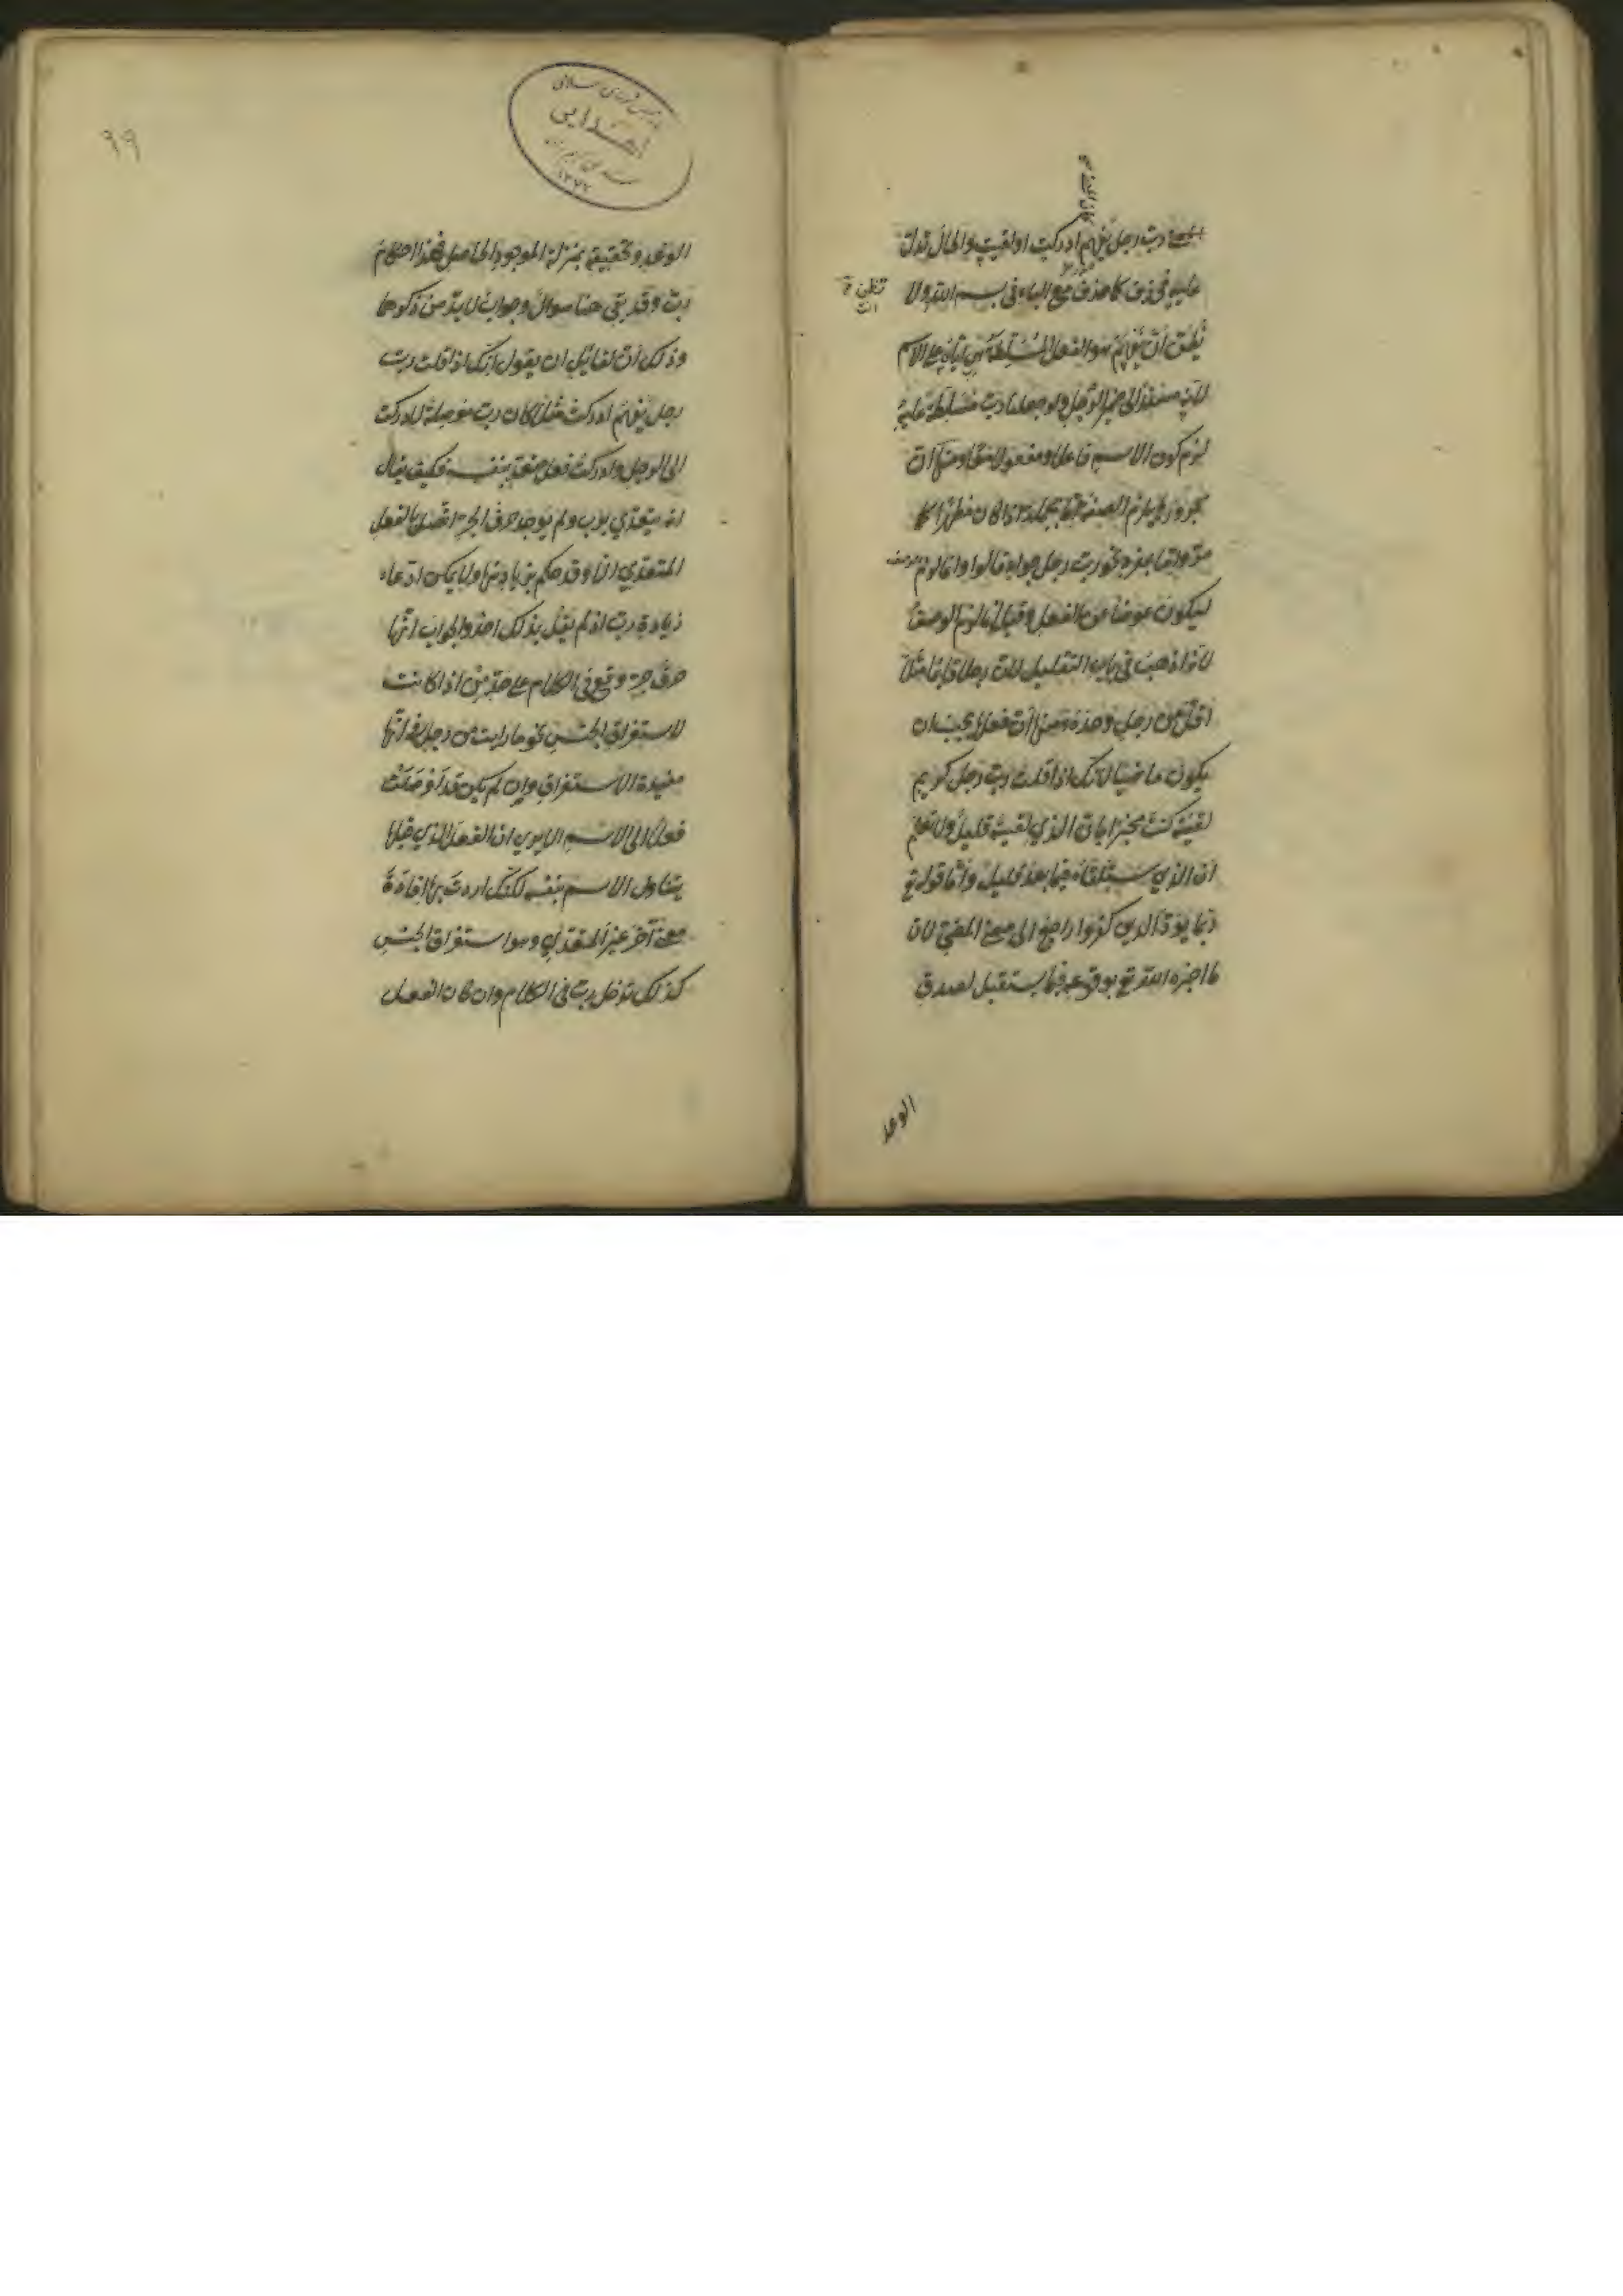 رب رجل يفهم ادركت او لقيت والحال تدل
عليه فحذف كما حذف مع الباء في بسم الله ولا
تظن
يظن ان يفهم هو الفعل المسلطة هي اياه على الاسم
لانه مسند الى ضمير الرجل ولو جعلنا رب مسلطة عليه
لزم كون الاسم فاعلا ومفعولا معا ومنها ان
مجرورها يلزم الصفة اذا كان مظهرا كما
نحو رب رجل جواد قالوا وانما لزم
ليكون عوضا عن الفعل وقيل انما لزم الوصف
لانه اذهب في باب التقليل لان رجلا قائما مثلا
اقل من رجل وحده ومنها ان فعلها يجب ان
يكون ماضيا لانك اذا قلت رب رجل كريم
لقيته كنت مخبرا بان الذي لقيته قليل ولا تعلم
ان الذي ستلقاه فيما بعد قليل واما قوله تع
ربما يود الذين كفروا راجع الى معنى المضي لان
ما اخبره الله تع بوقوعه فيما يستقبل لصدق
الوعد
٩٩
اهدايى
الوعد وتحقيقه بمنزلة الموجود الحاصل فهذا احكام
رب وقد بقى هنا سوال وجواب لا بد من ذكرها
وذلك ان لقائل ان يقول انك اذا قلت رب
رجل يفهم ادركت مثلا كان رب موصلة لادركت
الى الرجل وادركت فعل متعد بنفسه فكيف يقال
انه يتعدى برب ولم يوجد حرف الجر اتصل بالفعل
المتعدي الا وقد حكم بزيادتها ولا يمكن ادعاء
زيادة رب اذ لم يقل بذلك احد والجواب انها
حرف جر وقع في الكلام على حد من اذا كانت
لاستغراق الجنس نحو ما رايت من رجل فانها
مفيدة الاستغراق وان لم يكن قد اوصلت
فعلا الى الاسم الا يرى ان الفعل الذي قبلها
يتناول الاسم بنفسه لكنك اردت بها افادة
معنى آخر غير المتعدي وهو استغراق الجنس
كذلك تدخل رب في الكلام وان كان الفعل